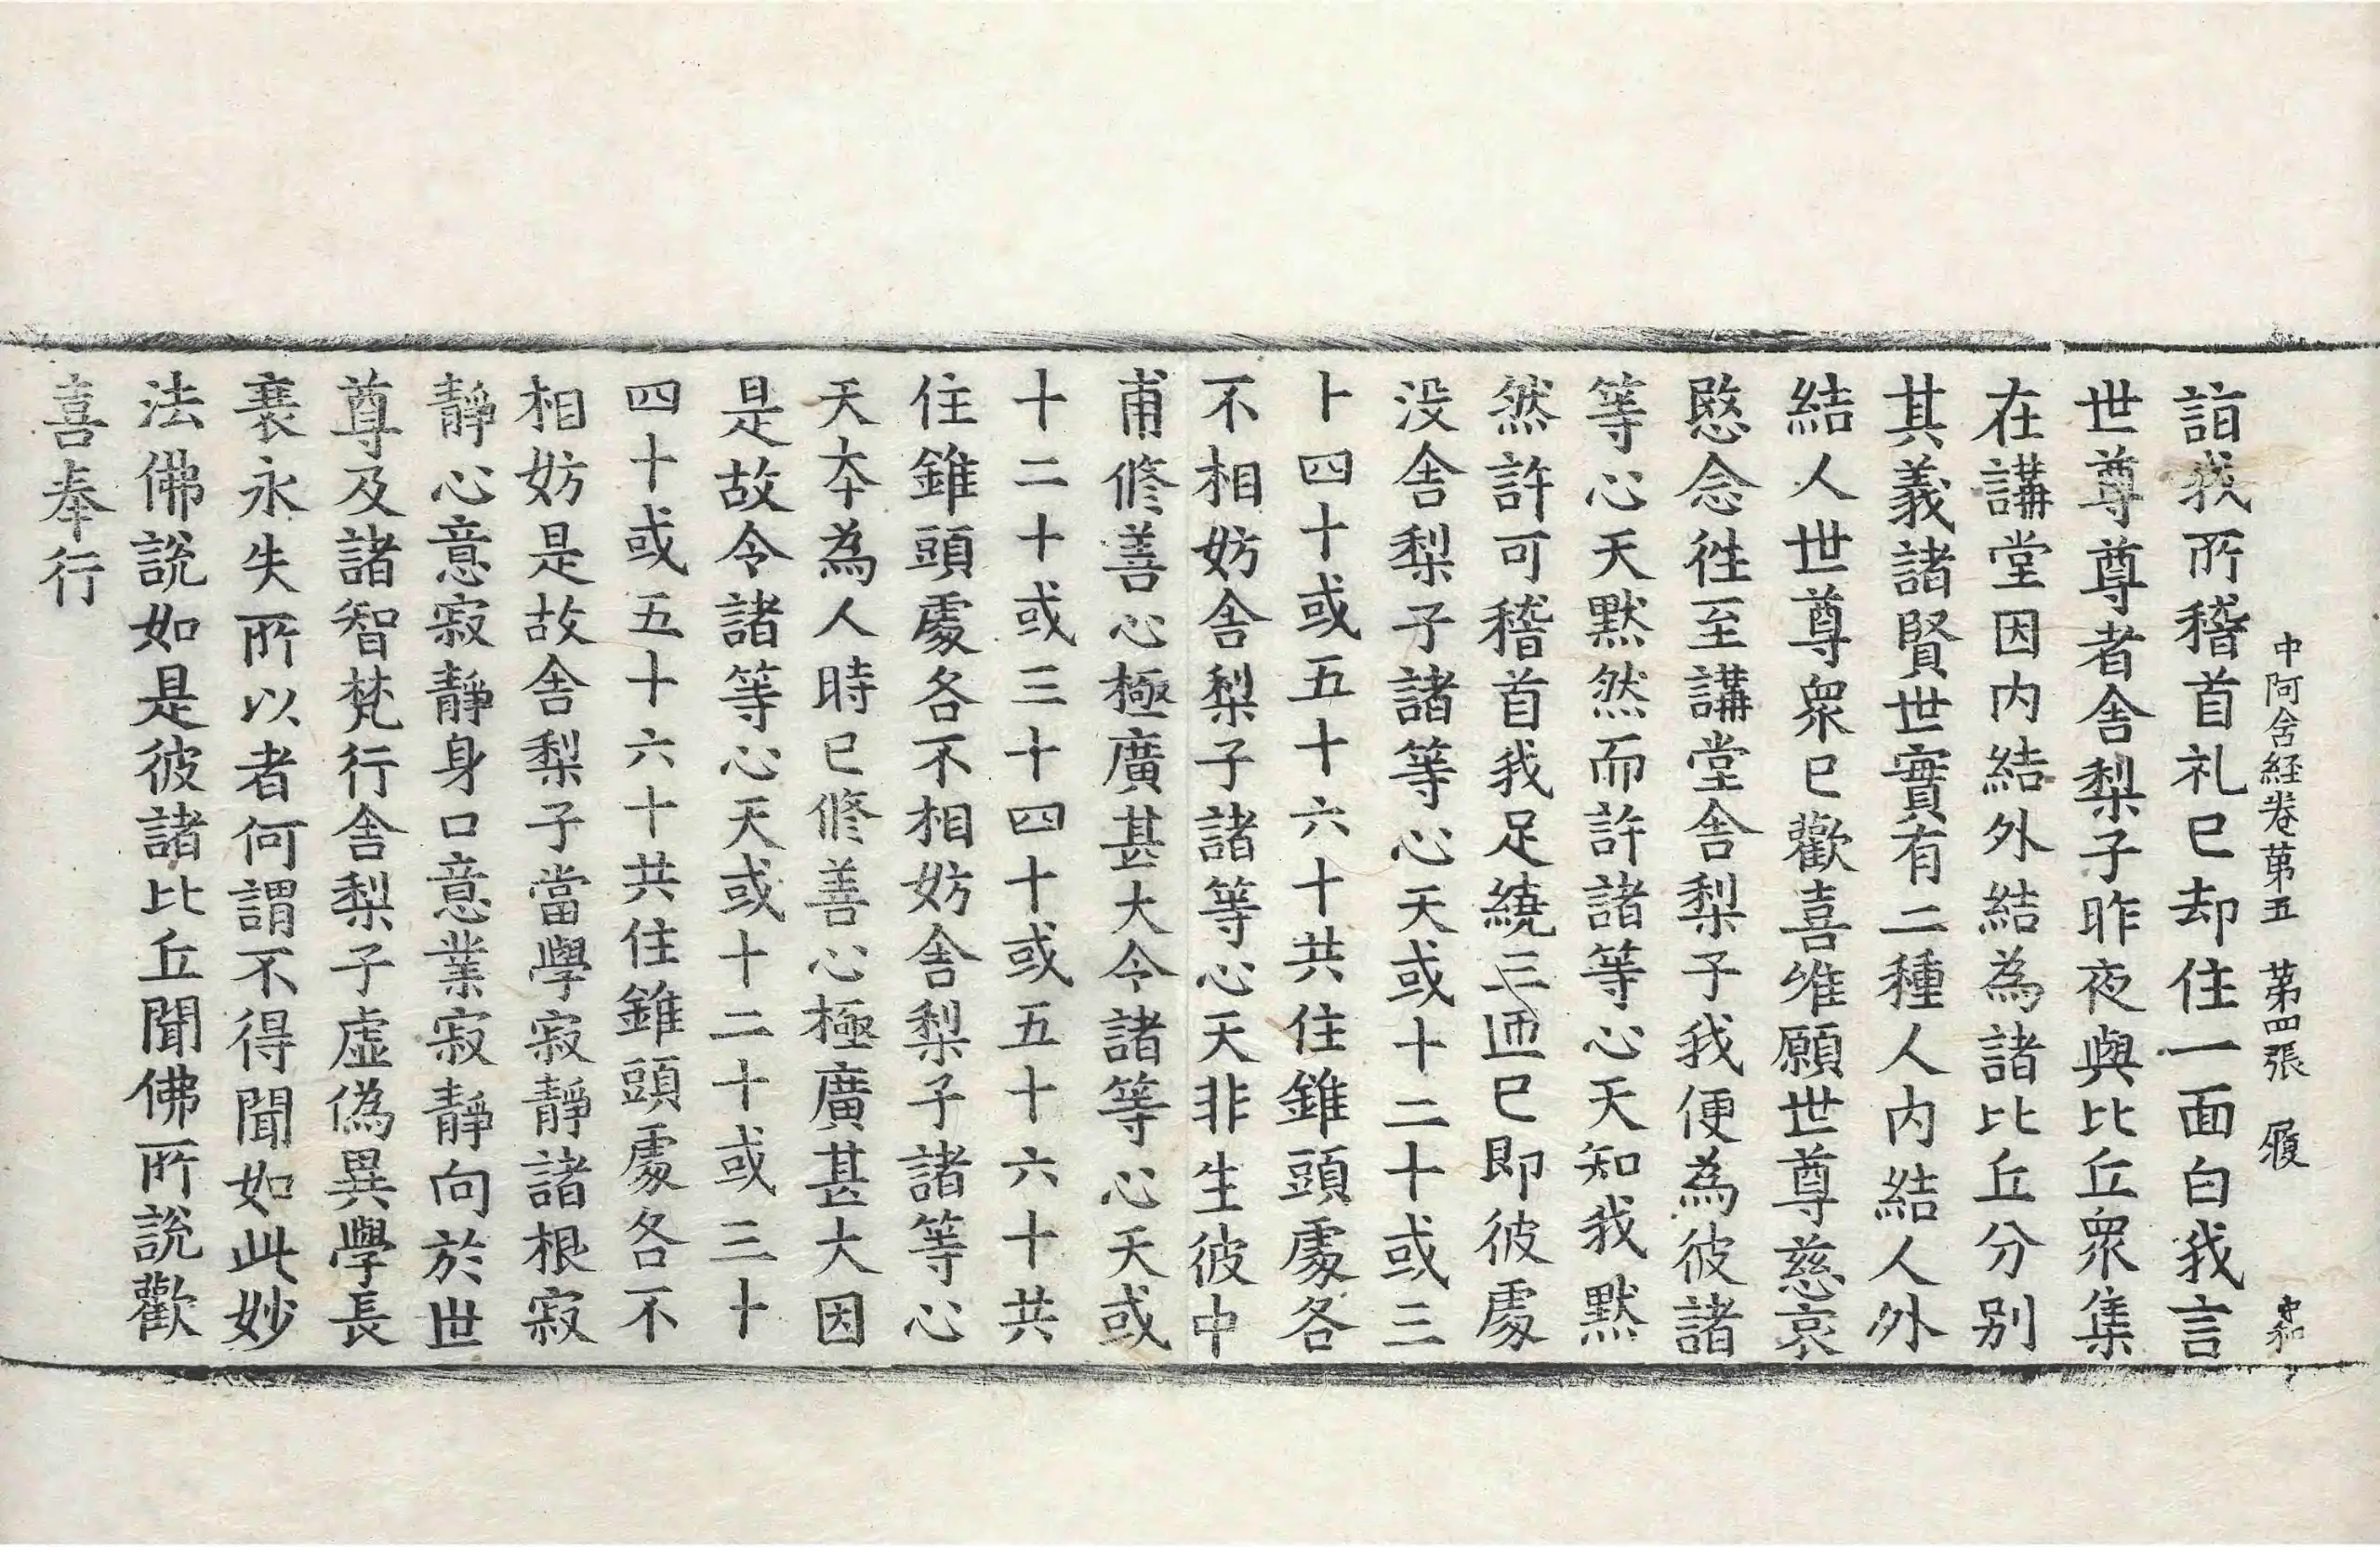 中阿含経卷苐五 苐四張 履
詣我所稽首礼已却住一面白我言
世尊尊者舍梨子昨夜與比丘衆集
在講堂因内結外結為諸比丘分别
其義諸賢世實有二種人内結人外
結人世尊衆已歡喜唯願世尊慈哀
愍念往至講堂舍梨子我便為彼諸
等心天默然而許諸等心天知我默
然許可稽首我足繞三匝已即彼處
没舍梨子諸等心天或十二十或三
十四十或五十六十共住錐頭處各
不相妨舍梨子諸等心天非生彼中
甫修善心極廣甚大令諸等心天或
十二十或三十四十或五十六十共
住錐頭處各不相妨舍梨子諸等心
天本為人時已修善心極廣甚大因
是故令諸等心天或十二十或三十
四十或五十六十共住錐頭處各不
相妨是故舍梨子當學寂靜諸根寂
靜心意寂靜身口意業寂靜向於世
尊及諸智梵行舍梨子虛偽異學長
衰永失所以者何謂不得聞如此妙
法佛說如是彼諸比丘聞佛所說歡
喜奉行